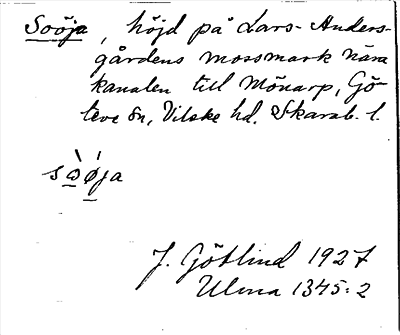 Soöja, höjd på Lars-Anders-
gårdens mossmark nära
kanalen till Mönarp, Gö-
teve sn, Vilske hd. Skarab. l.
sòǿja
J. Götlind 1927
Ulma 1345:2